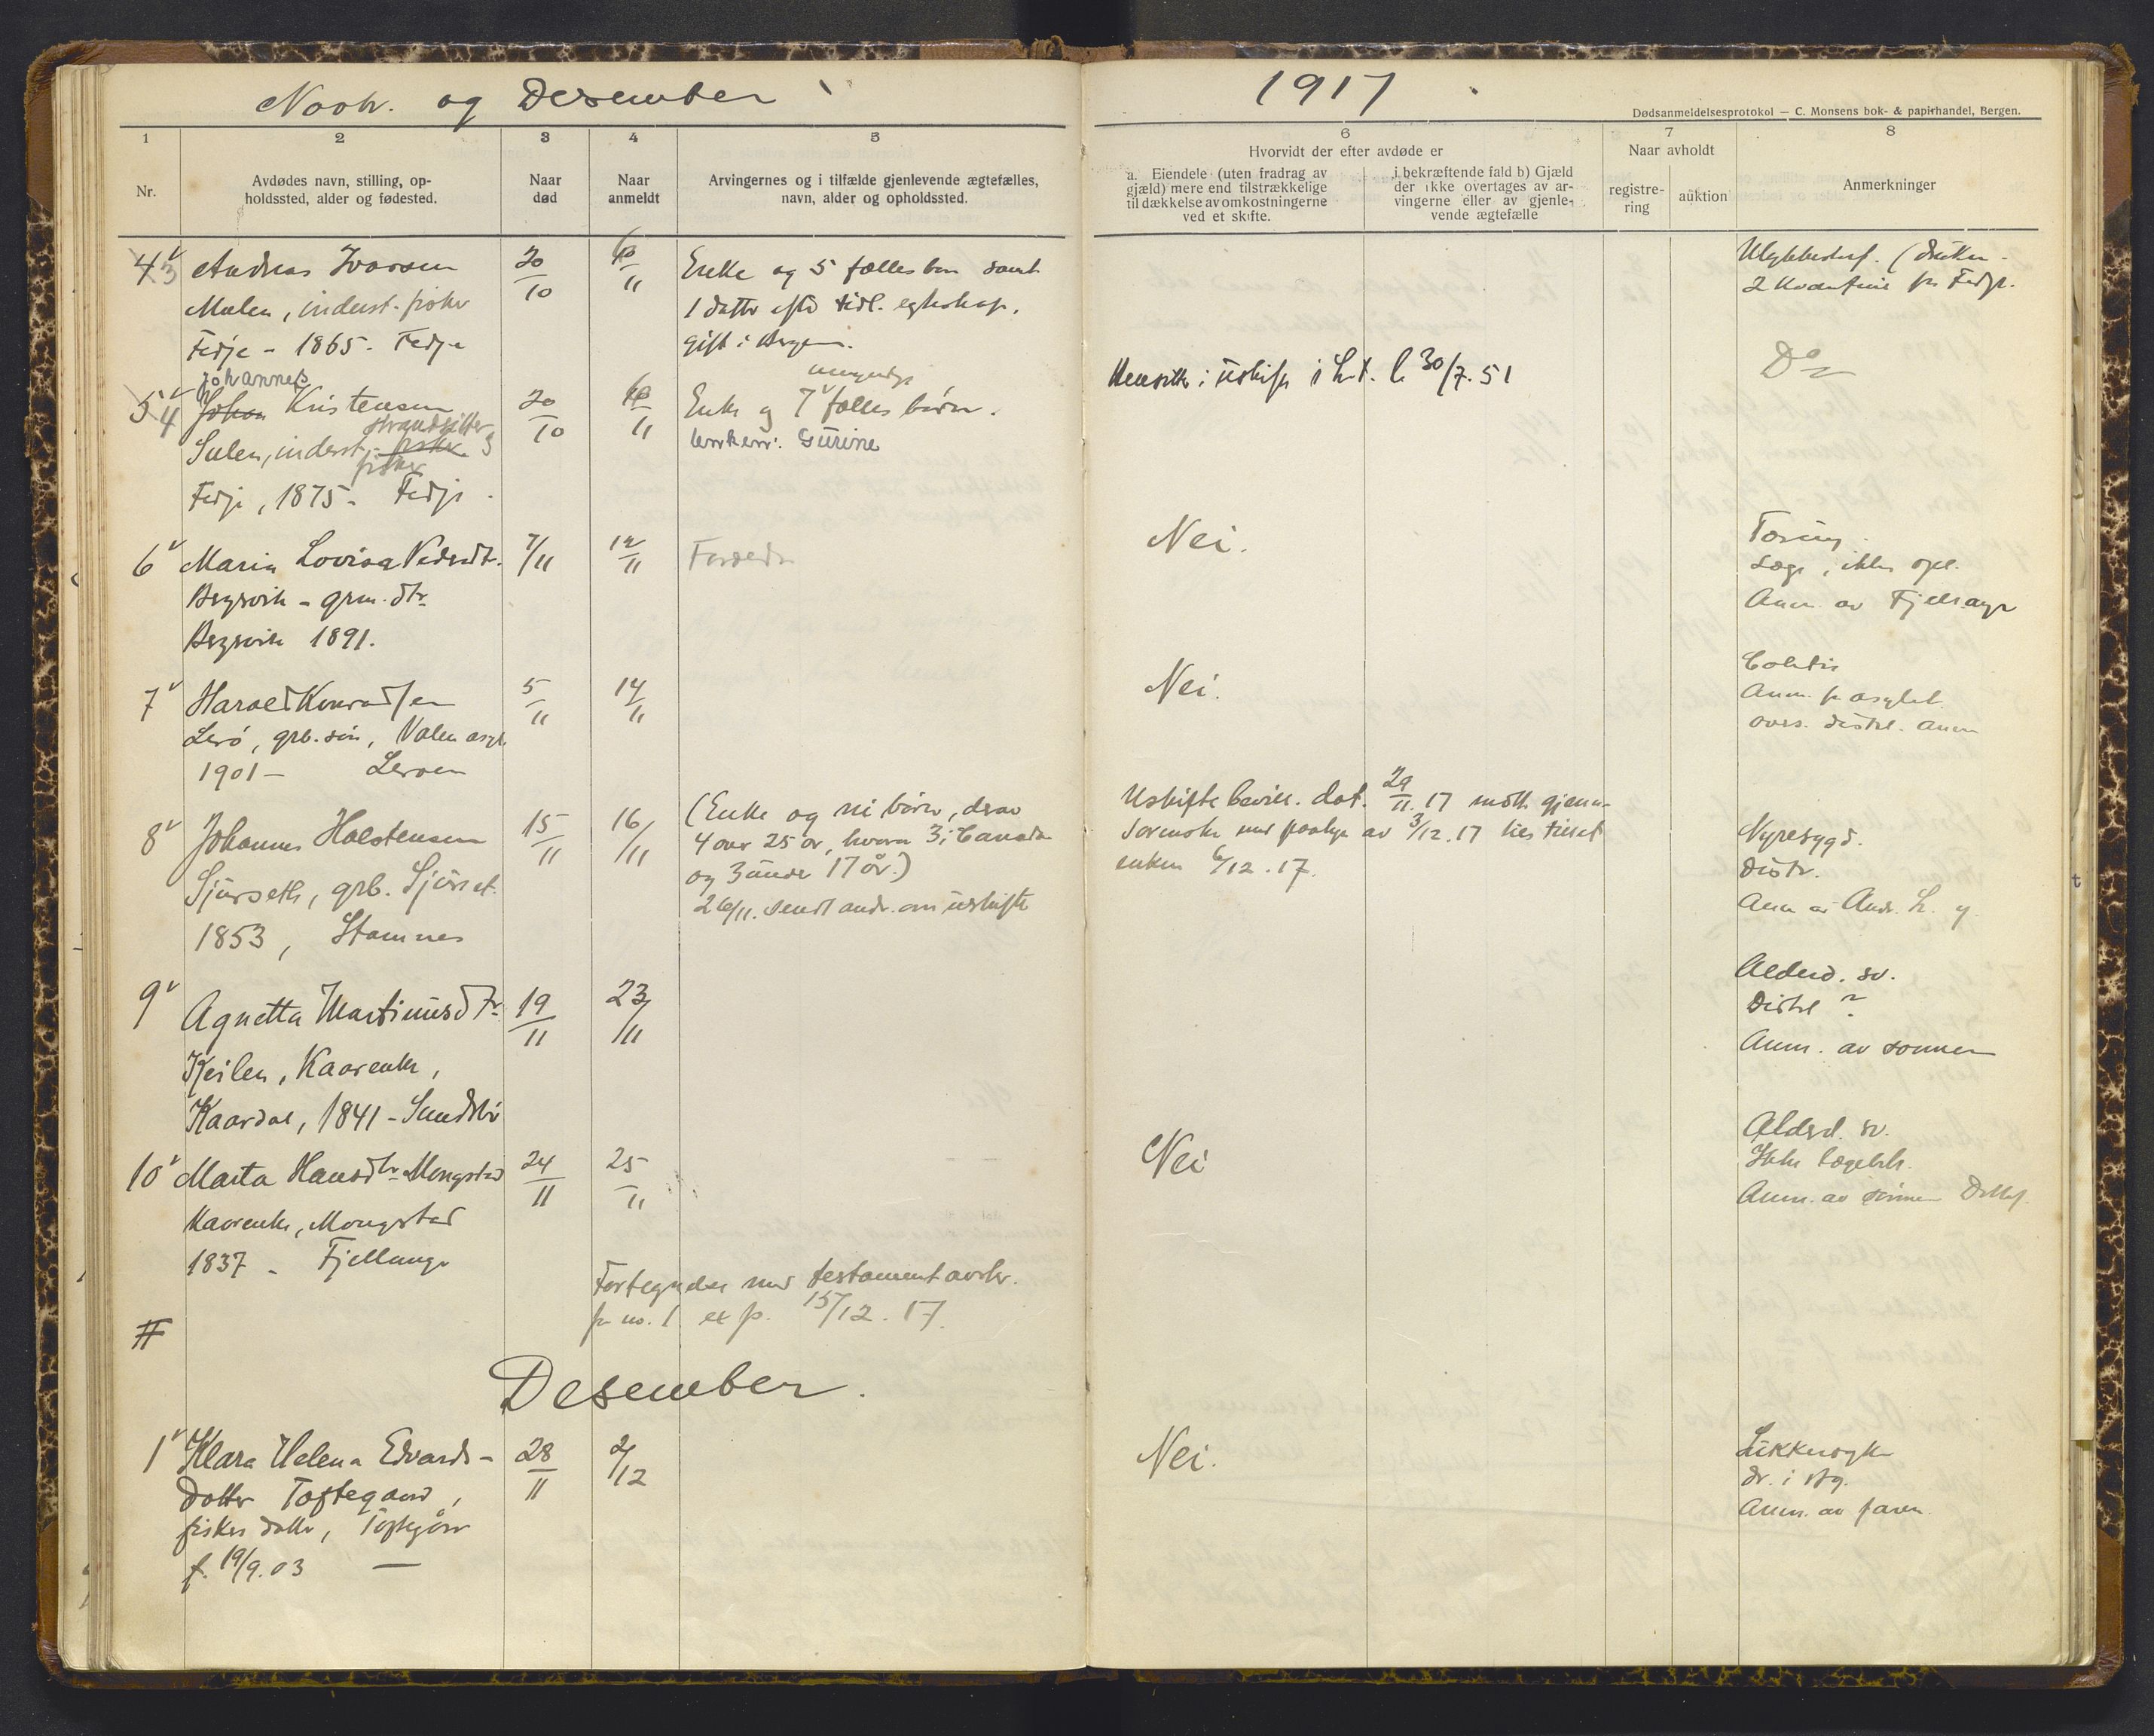 Novbr. og Desember
1917
Dødsanmeldelsesprotokol — C. Monsens bok- & papirhandel, Bergen.
1 2 3 4 5 6 7 8
Nr.
Avdødes navn, stilling, op-
holdssted, alder og fødested.
Naar
død
Naar
anmeldt
Arvingernes og i tilfælde gjenlevende ægtefælles,
navn, alder og opholdssted.
Hvorvidt der efter avdøde er
a. Eiendele (uten fradrag av
gjæld) mere end tilstrækkelige
til dækkelse av omkostningerne
ved et skifte.
i bekræftende fald b) Gjæld
der ikke overtages av ar-
vingerne eller av gjenle-
vende ægtefælle
Naar avholdt
registre-
ring
auktion
Anmerkninger
4 3 Andreas Ivarsen
Mulen, inderst. fisker
Fedje - 1865 - Fedje
20/10
6/11
Enke og 5 fælles barn samt
1 datter efter tidl. egteskap,
gift i Bergen.
2 Fedje.
5 4 Johannes
Johan Kristensen
strandsitter
Sulen, inderst, fisker
fisker
Fedje, 1875 - Fedje.
20/10
6/11
umyndige
Enke og 7 fælles børn.
Gurine
Hensitter i uskifte 30/7.51
Do
6 Maria Lovisa
grm. dtr
1891.
7/11
12/11
Foreldr
Nei.
Tæring
Læge, ikke
Anm. av
7 Harald Konradsen
Lerø, grb. søn, Valen asyl
1901 - Lerøen
5/11
14/11
Nei.
Anm. fr asylet
8 Johannes Holstensen
Sjurseth, grb. Sjurset
1853, Stamnes
15/11
16/11
(Enke og ni børn, derav
4 over 25 år, hvorav 3 i Canada
og 3 under 17 år.)
26/11. sendt andr. om uskifte
Uskifte bevill. dat. 29/11.17 mott. gjenn.
Sorensk. med paategn av 3/12.17
enken 6/12.17.
Nyresygd.
Distr.
Anm av Andr.
9 Agnetta Martinusdtr
Keilen, Kaarenke,
Kaardal, 1841 - Sundsbø
19/11
23/11
Alderd. sv.
Distrl ?
Anm. av sønnen
10 Marta Hansdtr Mongstad
Kaarenke, Mongstad
1837 - Fjellange
24/11
25/11
Nei
Alderd. sv.
Ikke lægebeh.
Anm. av sønnen
Fortegnelse med testamentavskr.
fr no. 1 exp. 15/12.17.
#
Desember.
1 Klara Helena Edvards-
dotter Toftegaard,
fiskers dotter, Toftegård
f. 19/9.03 —
28/11
2/12
Nei.
Sukkersyke
dr. i Bg.
Anm. av faren